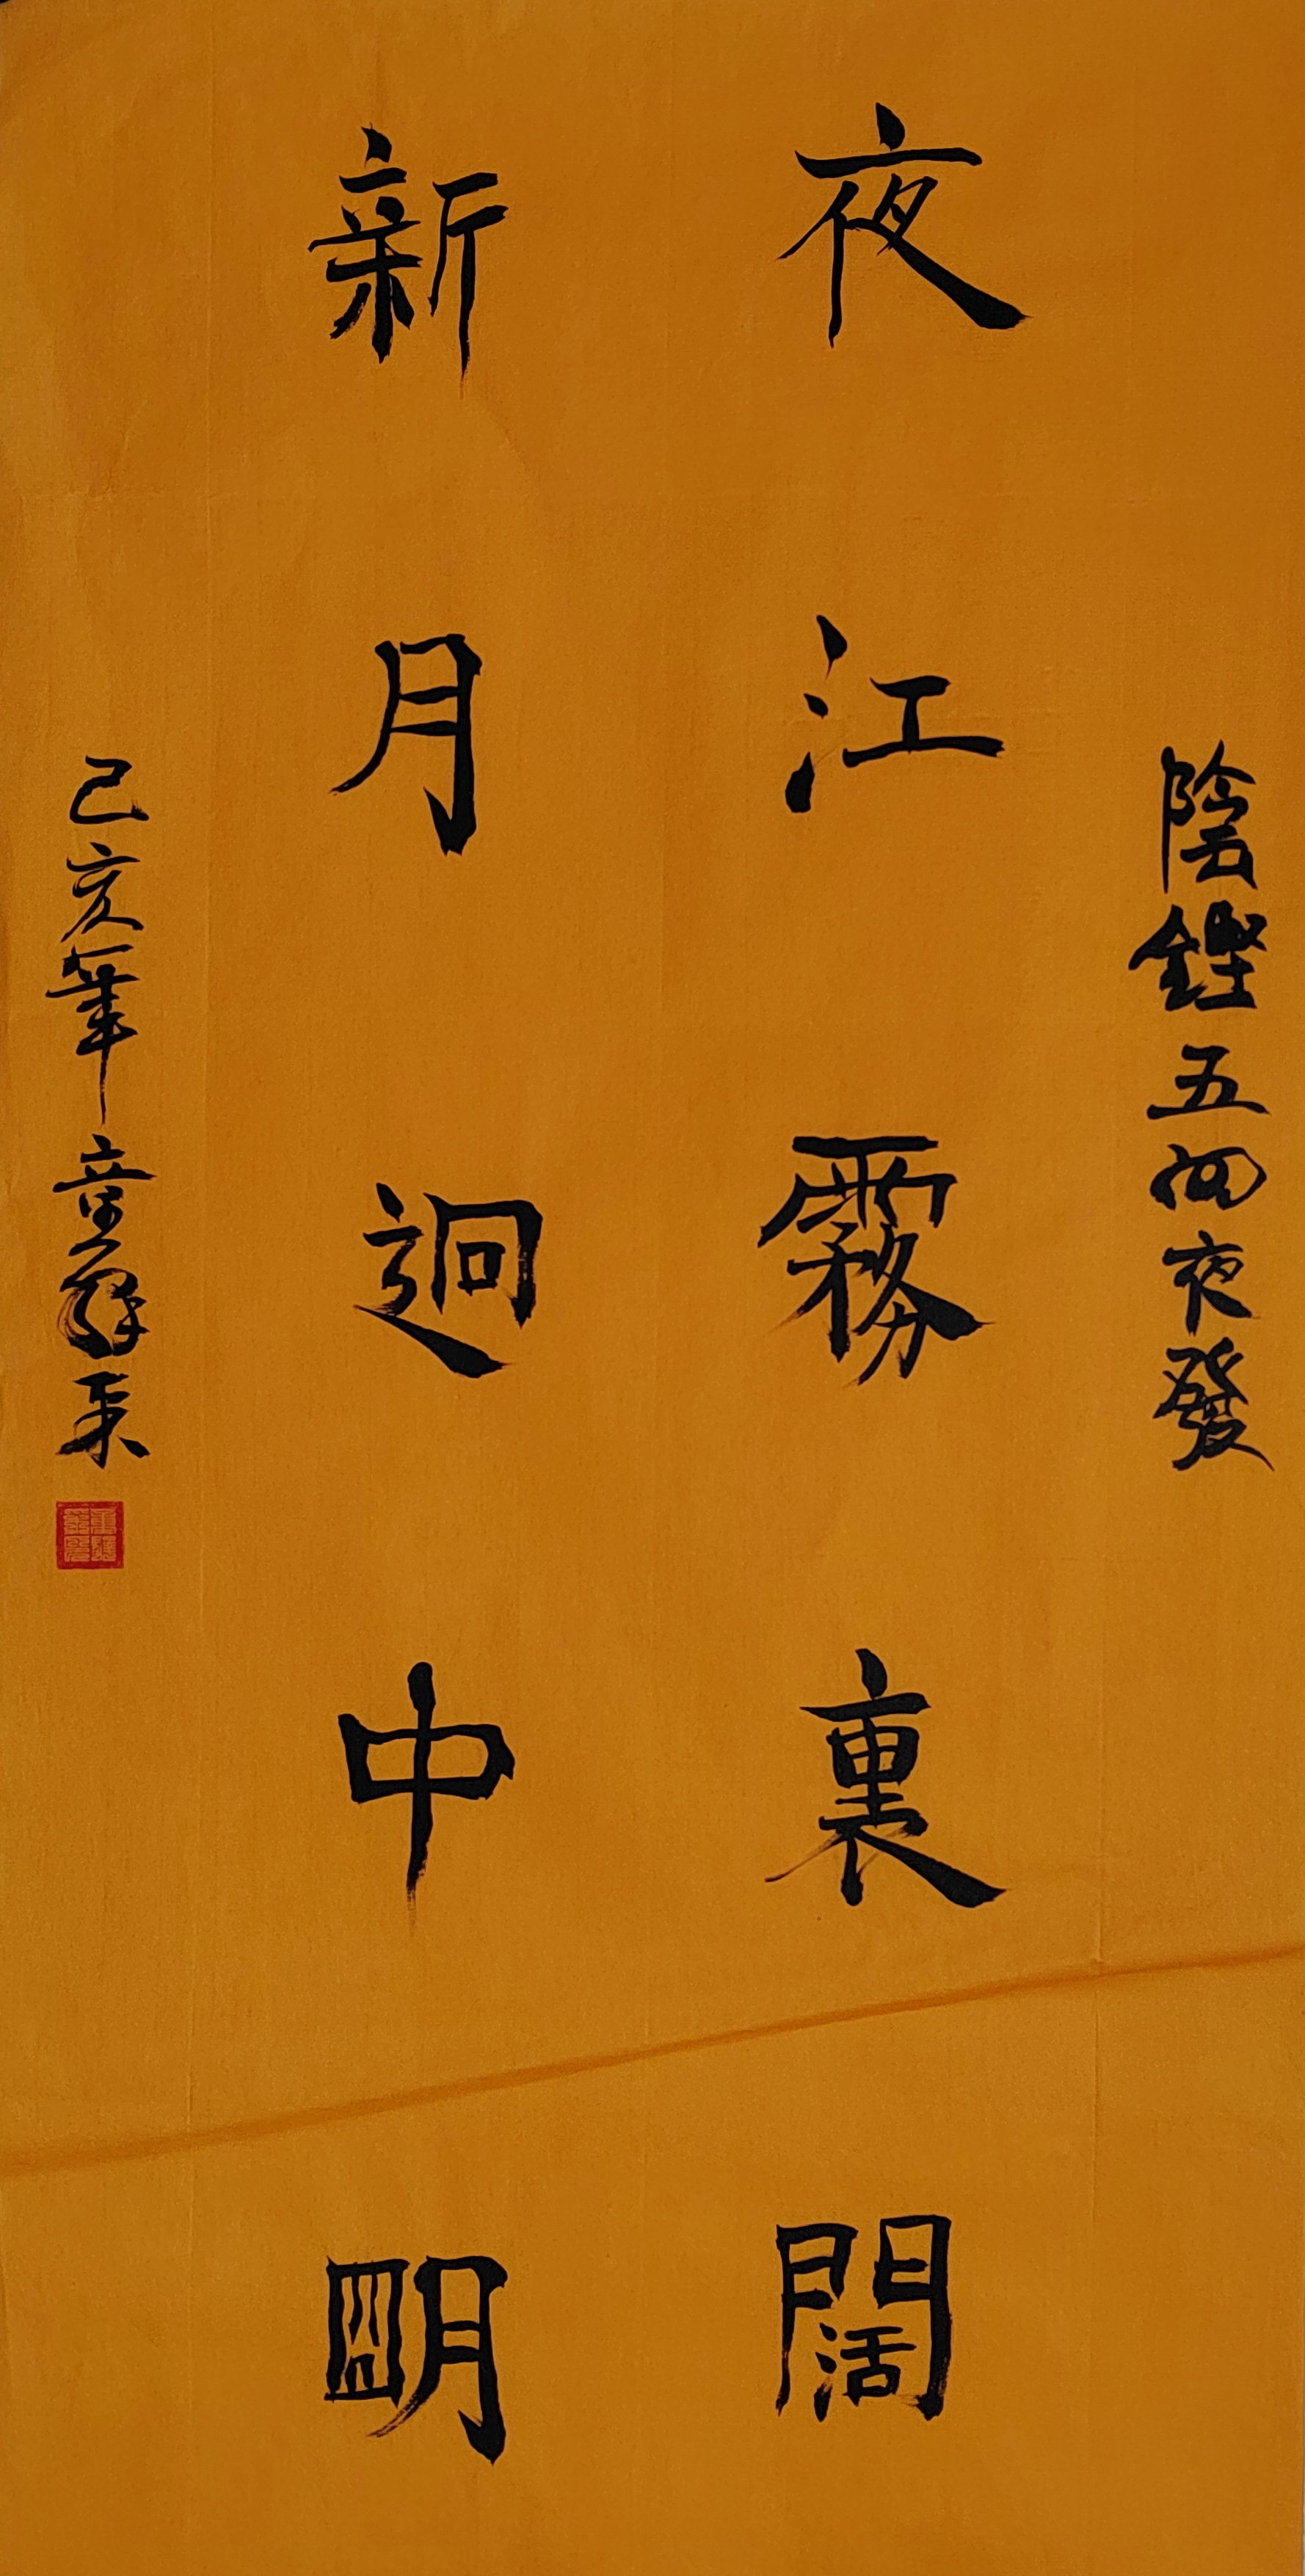 陰鏗五洲夜發
夜江霧裏闊
新月迥中明
己亥年童